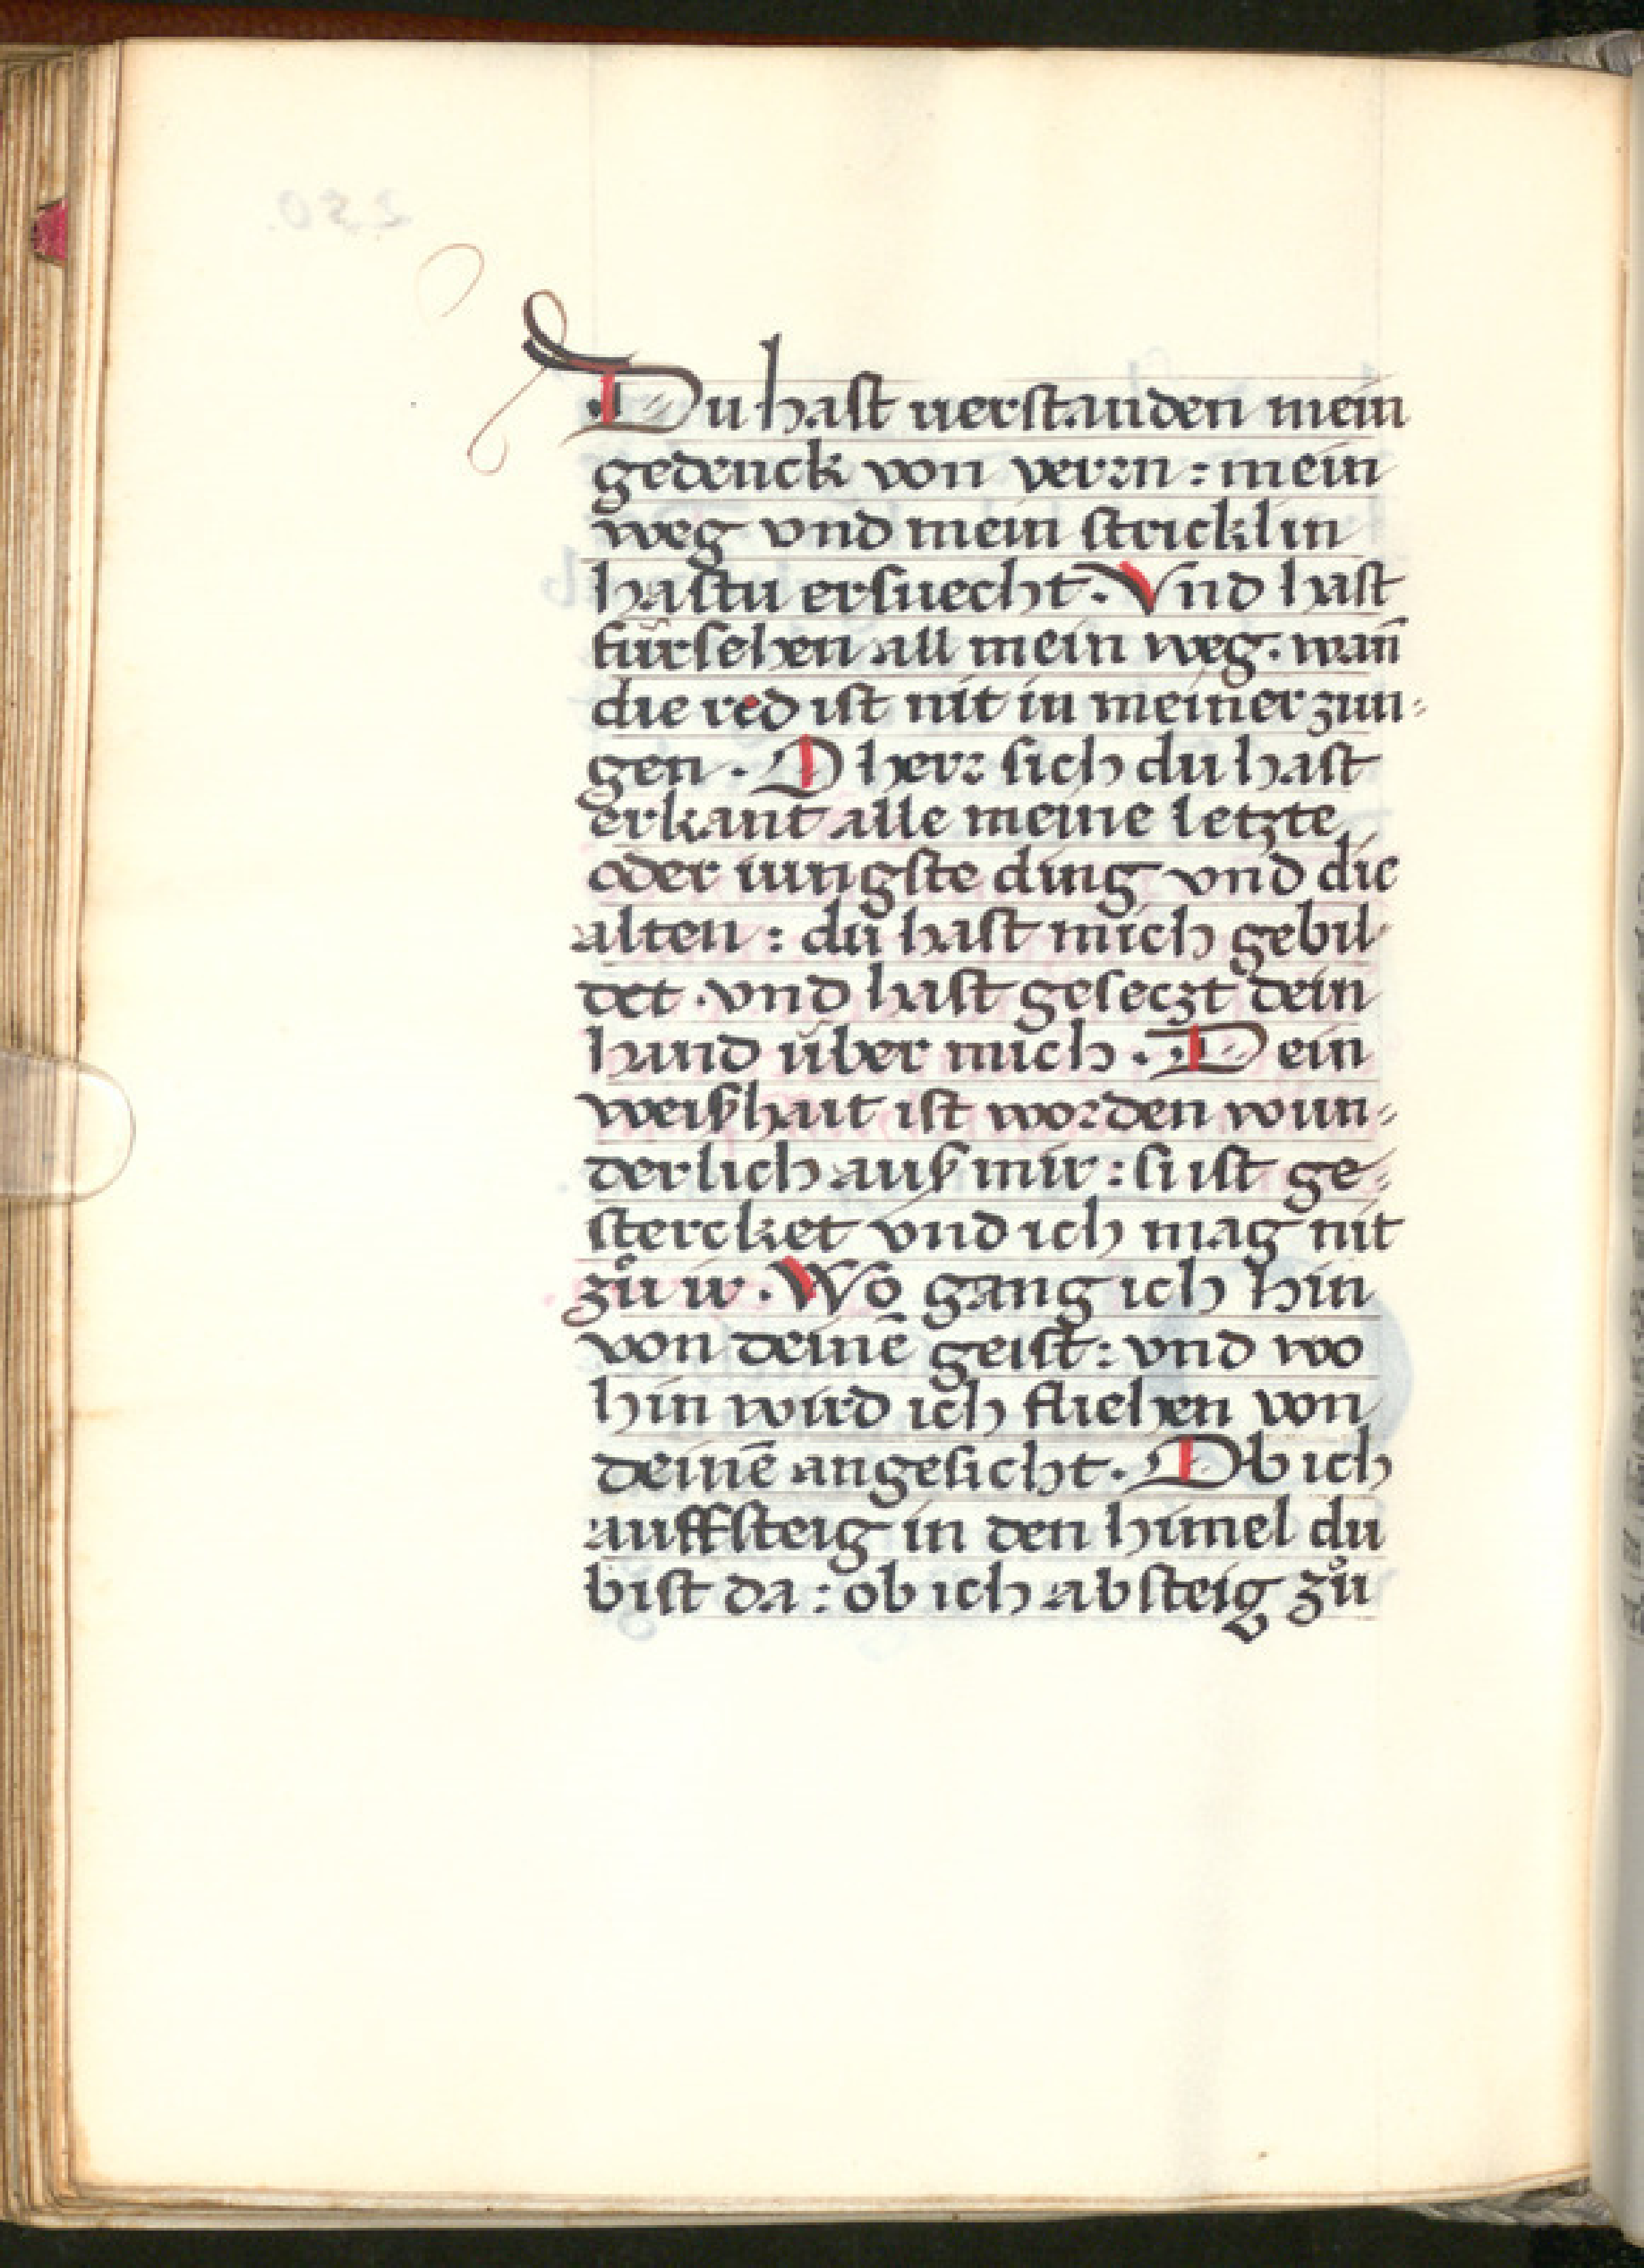 Du hast uerstanden mein
gedenck von verrn : mein
weg vnd mein stricklin
hastu ersuecht. Vnd hast
fürsehen all mein weg. wañ
die red ist nit in meiner zun⸗
gen . O herr sich du hast
erkant alle meine letzte
oder iungste ding vnd die
alten : du hast mich gebil
det . vnd hast geseczt dein
hand über mich . Dein
weißhait ist worden wun⸗
derlich auß mir : si ist ge⸗
stercket vnd ich mag nit
zů ir . Wo gang ich hin
von deinē geist : vnd wo
hin wird ich fliehen von
deinē angesicht. Ob ich
auffsteig in den himel du
bist da : ob ich absteig zů